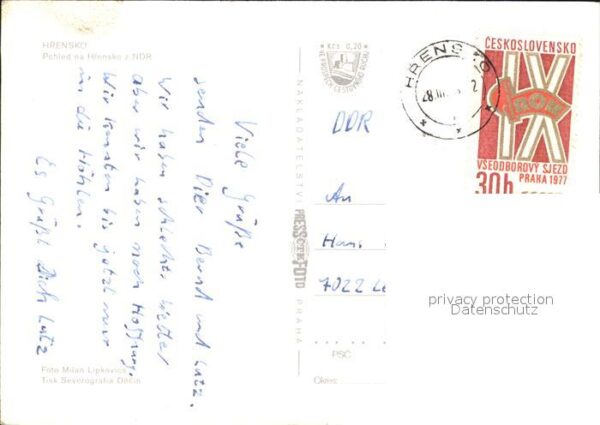 HŘENSKO
Pohled na Hřensko z NDR
Viele Grüße
senden Dir Bernd und Lutz.
Wir haben schlechtes Wetter
aber wir haben noch Hoffnung.
Wir konnten bis jetzt nur
in die Höhlen.
Es Grüßt Dich Lutz
Foto Milan Lipkovics
Tisk Severografia Děčín
Kčs 0,20
NAKLADATELSTVÍ
PRESSFOTO
PRAHA
HŘENSKO
28.III.
2
ČESKOSLOVENSKO
IX
ROH
VŠEODBOROVÝ SJEZD
PRAHA 1977
30h
DDR
An
7022 Le
privacy protection
Datenschutz
PSČ
Okres: